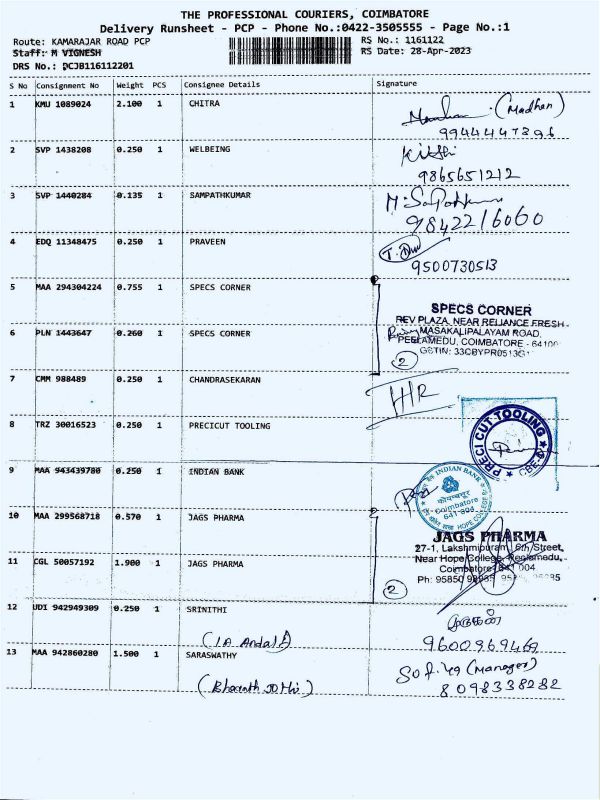 THE PROFESSIONAL COURIERS, COIMBATORE
Delivery Runsheet - PCP - Phone No.:0422-3505555 - Page No.:1
Route: KAMARAJAR ROAD PCP RS No.: 1161122
Staff: M VIGNESH RS Date: 28-Apr-2023
DRS No.: DCJB116112201
S No Consignment No Weight PCS Consignee Details Signature
1 KMU 1089024 2.100 1 CHITRA (Madhan)
9944447396
2 SVP 1438208 0.250 1 WELBEING
9865651212
3 SVP 1440284 0.135 1 SAMPATHKUMAR M. Sampathkumar
9842216060
4 EDQ 11348475 0.250 1 PRAVEEN
9500730513
5 MAA 294304224 0.755 1 SPECS CORNER
SPECS CORNER
REV PLAZA, NEAR RELIANCE FRESH
6 PLN 1443647 0.260 1 SPECS CORNER MASAKALIPALAYAM ROAD,
PEELAMEDU, COIMBATORE - 64100
GSTIN: 33CBYPR0513G1
2
7 CMM 988489 0.250 1 CHANDRASEKARAN
8 TRZ 30016523 0.250 1 PRECICUT TOOLING
PRECI CUT TOOLING
CBE
9 MAA 943439780 0.250 1 INDIAN BANK
INDIAN BANK
कोयम्बत्तूर
Coimbatore
641-004
HOPE COLLEGE
10 MAA 299568718 0.570 1 JAGS PHARMA
JAGS PHARMA
27-1, Lakshmipuram, 6th Street,
11 CGL 50057192 1.900 1 JAGS PHARMA Near Hope College, Peelamedu,
Coimbatore-641 004
Ph: 95850
2
12 UDI 942949309 0.250 1 SRINITHI
9600969469
13 MAA 942860280 1.500 1 SARASWATHY (Manager)
8098338282